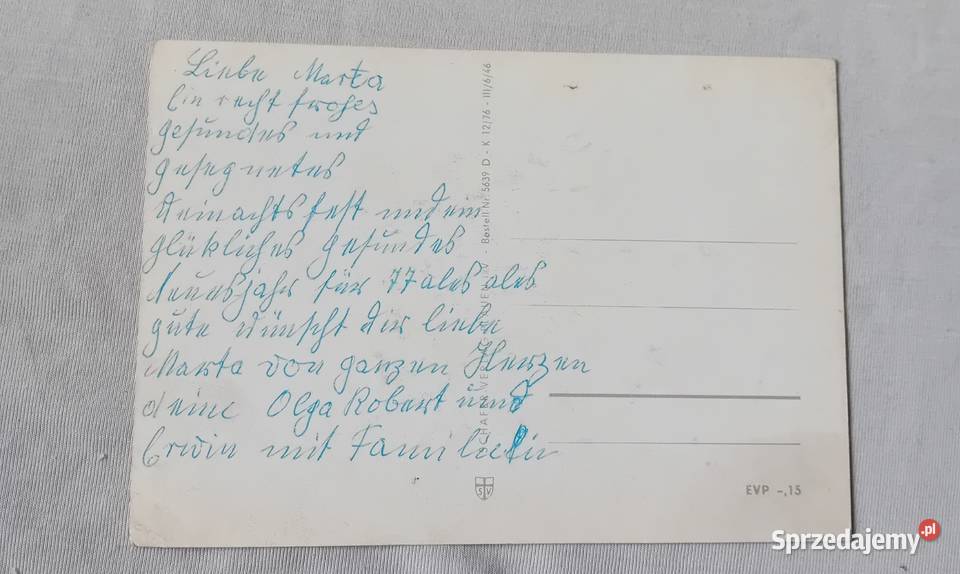 Liebe Marta
Ein recht frohes
gesundes und
gesegnetes
Weinachtsfest und ein
glükliches gesundes
Neuesjahr für 77 ales ales
gute wünscht dir liebe
Marta von ganzen Herzen
deine Olga Robert und
Erwin mit Familie
Bestell Nr. 5639 D - K 12/76 - III/6/46
SV
EVP -,15
Sprzedajemy.pl